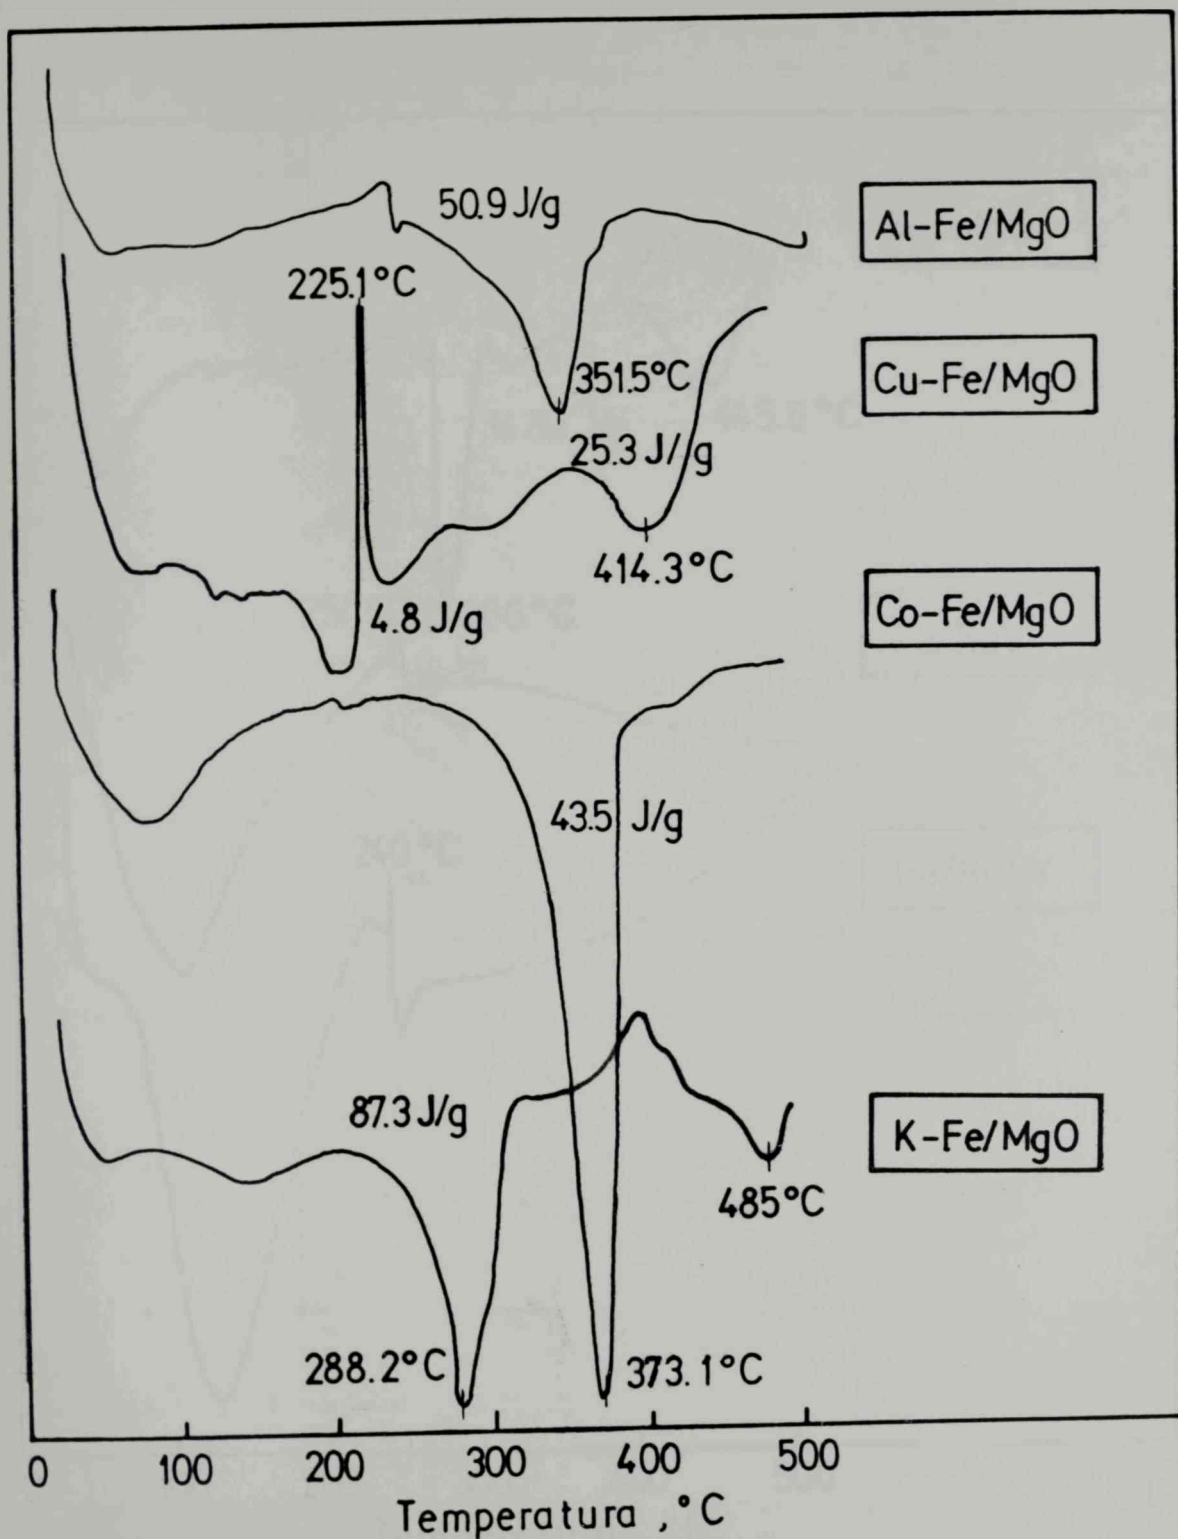 50.9 J/g
Al-Fe/MgO
225.1°C
351.5°C
Cu-Fe/MgO
25.3 J/g
414.3°C
4.8 J/g
Co-Fe/MgO
43.5 J/g
87.3 J/g
K-Fe/MgO
485°C
288.2°C
373.1°C
0 100 200 300 400 500
Temperatura ,°C
240°C